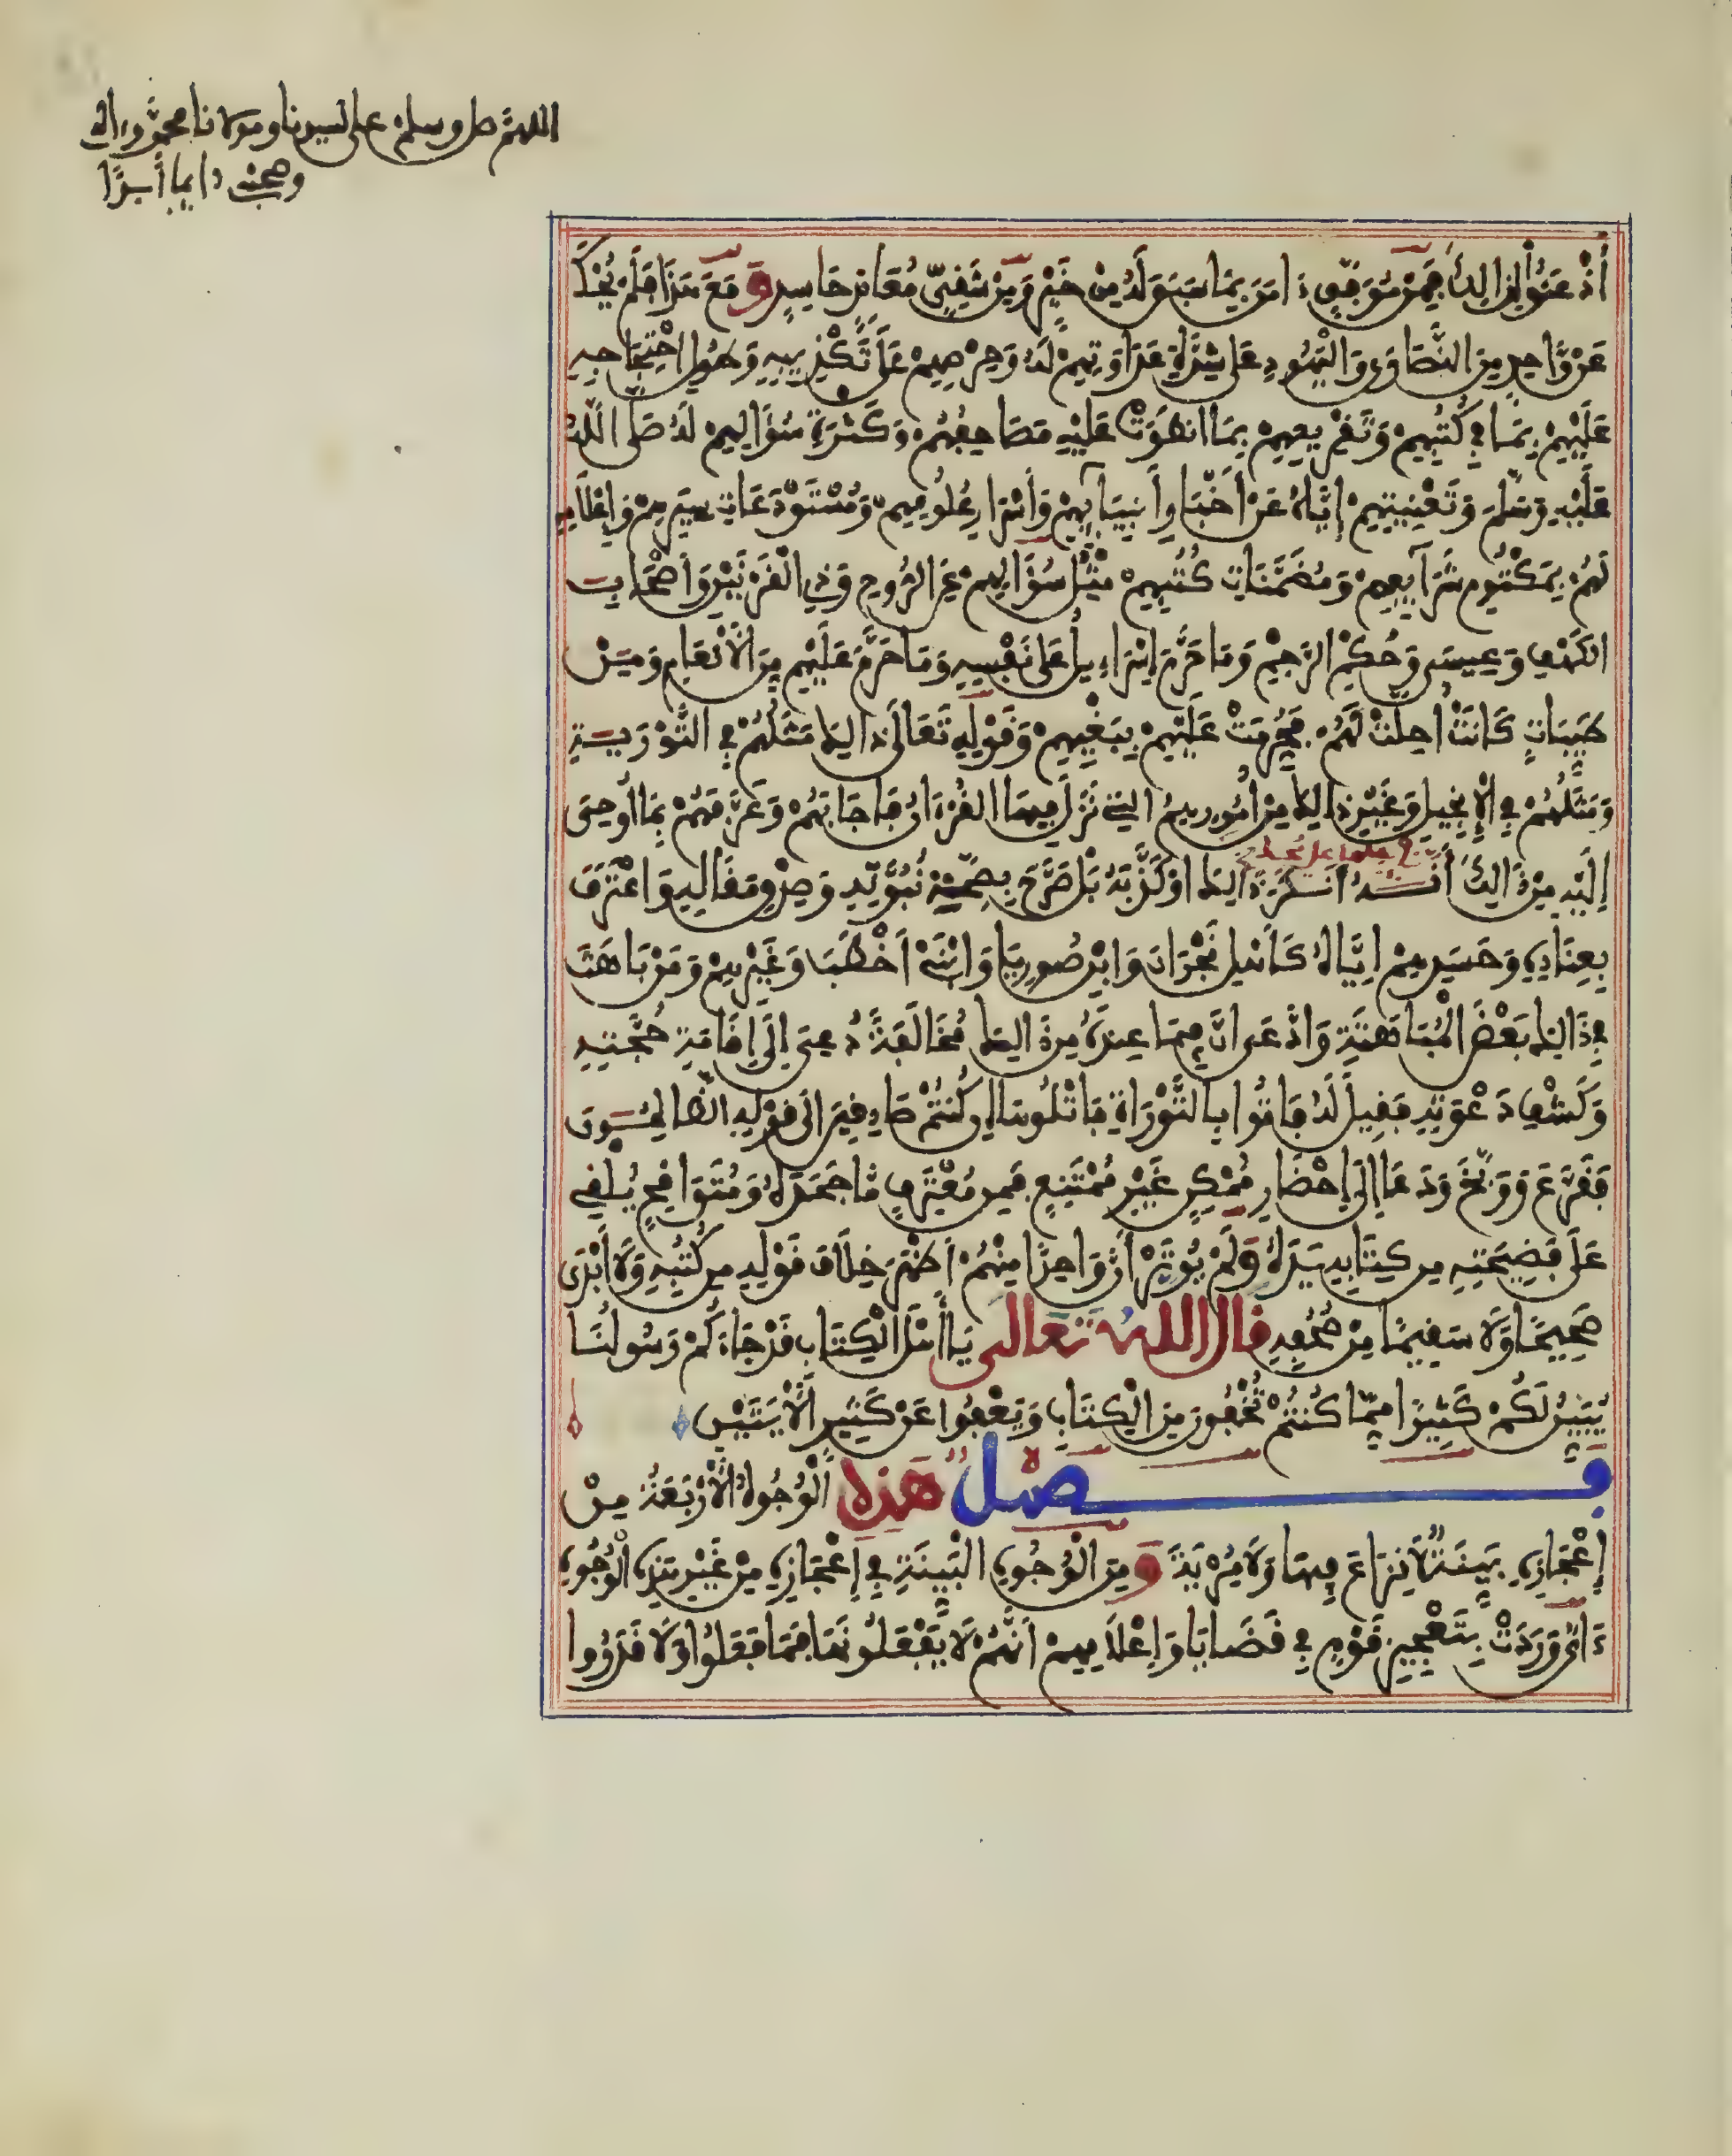 اللهم صل وسلم على سيدنا ومولانا محمد وءاله
وصحبه دايما أبدا
أذعنوا لذالك فمن موفق ءامن بما سبق له من خير ومن شقي معاند حاسد و مع هذا فلم يحك
عن واحد من النصارى واليهود على شدة عداوتهم له وحرصهم على تكذيبه وطول احتجاجه
عليهم بما في كتبهم وتقريعهم بما انطوت عليه مصاحفهم وكثرة سؤالهم له صلى الله
عليه وسلم وتعنيتهم إياه عن أخبار أنبيآيهم وأسرار علومهم ومستودعات سيرهم وإعلامه
لهم بمكتوم شرآيعهم ومضمنات كتبهم مثل سؤالهم عن الروح وذي القرنين وأصحاب
الكهف وعيسى وحكم الرجم وما حرم إسراءيل على نفسه وما حرم عليهم من الأنعام ومن
طيبات كانت أحلت لهم فحرمت عليهم ببغيهم وقوله تعالى ذالك مثلهم في التورية
ومثلهم في الإنجيل وغير ذالك من أمورهم التي نزل فيها القرءان فأجابهم وعرفهم بما أوحى
إليه من ذالك أنه أنكر ذالك أو كذبه بل أكثرهم صرح بصحة نبوته وصدق مقاله واعترف
بعناده وحسدهم إياه كأهل نجران وابن صوريا وابني أخطب وغيرهم ومن باهت
في ذالك بعض المباهتة وادعى أن فيما عندهم من ذالك مخالفة دعي إلى إقامة حجته
وكشف دعوته فقيل له فاتوا بالتوراة فاتلوها إن كنتم صادقين إلى قوله الظالمون
فقرع ووبخ ودعا إلى إحضار ممكن غير ممتنع فمن معترف بما جحده ومتواقح يلقي
على فضيحته من كتابه يده ولم يوثر أن واحدا منهم أظهر خلاف قوله من كتبه ولا أبدى
صحيحا ولا سقيما من صحفه قال الله تعالى يا أهل الكتاب قد جاءكم رسولنا
يبين لكم كثيرا مما كنتم تخفون من الكتاب ويعفوا عن كثير الآيتين
فصل هذه الوجوه الأربعة من
إعجازه بينة لا نزاع فيها ولا مرية و من الوجوه البينة في إعجازه من غير هذه الوجوه
ءاي وردت بتعجيز قوم في قضايا وإعلامهم أنهم لا يفعلونها فما فعلوا ولا قدروا